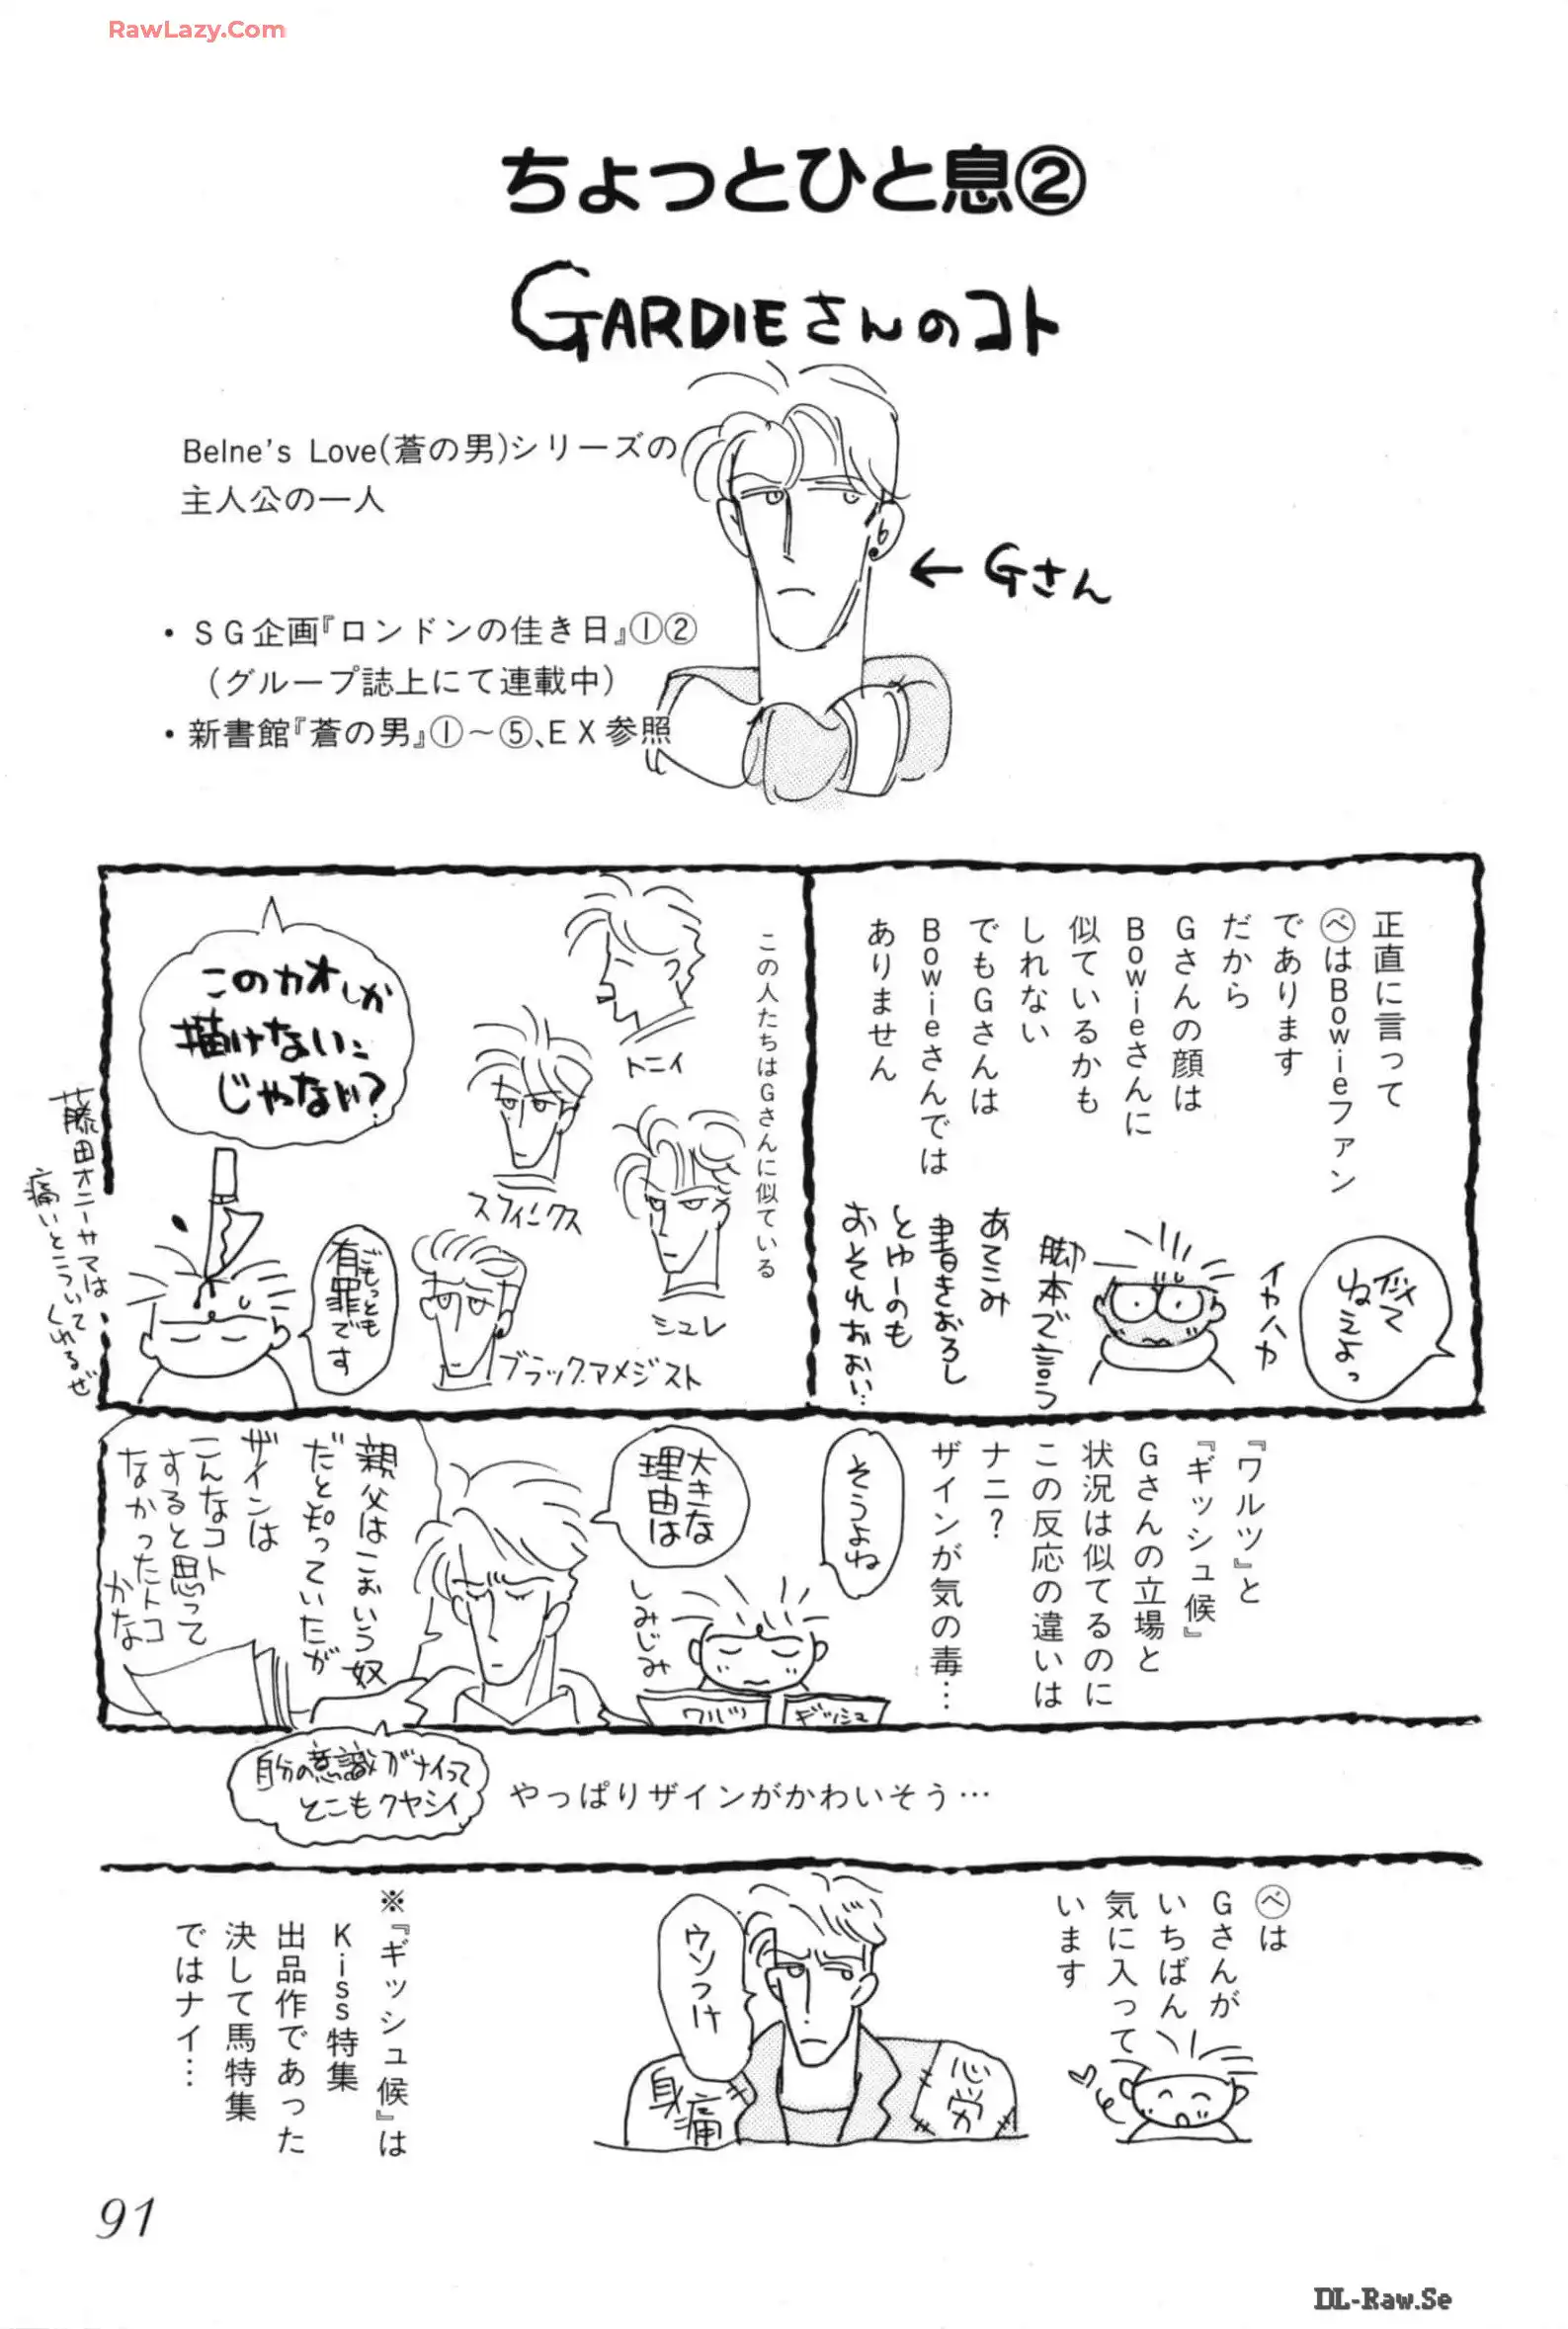 RawLazy.Com
ちょっとひと息②
GARDIEさんのコト
Belne's Love(蒼の男)シリーズの
主人公の一人
←Gさん
・SG企画『ロンドンの佳き日』①②
(グループ誌上にて連載中)
・新書館『蒼の男』①〜⑤、EX参照
正直に言って
㋬はBowieファン
であります
だから
Gさんの顔は
Bowieさんに
似ているかも
しれない
でもGさんは
Bowieさんでは
ありません
似て
ねえよっ
イカハカ
脚本で言う
あてこみ
書きおろし
とゆーのも
おそれおおい…
この人たちはGさんに似ている
トニィ
スフィンクス
シュレ
ブラックアメジスト
このカオしか
描けないん
じゃない?
ごもっとも
有罪です
藤田オニーサマは
痛いとこついて
くれるぜ
『ワルツ』と
『ギッシュ候』
Gさんの立場と
状況は似てるのに
この反応の違いは
ナニ?
ザインが気の毒…
そうよね
しみじみ
ワルツ
ギッシュ
大きな
理由は
親父はこおいう奴
だと知っていたが
ザインは
こんなコト
すると思って
なかったトコ
かな
自分の意識がナイって
とこもクヤシイ
やっぱりザインがかわいそう…
㋬は
Gさんが
いちばん
気に入って
います
ウソつけ
心労
身痛
※『ギッシュ候』は
Kiss特集
出品作であった
決して馬特集
ではナイ…
91
DL-Raw.Se